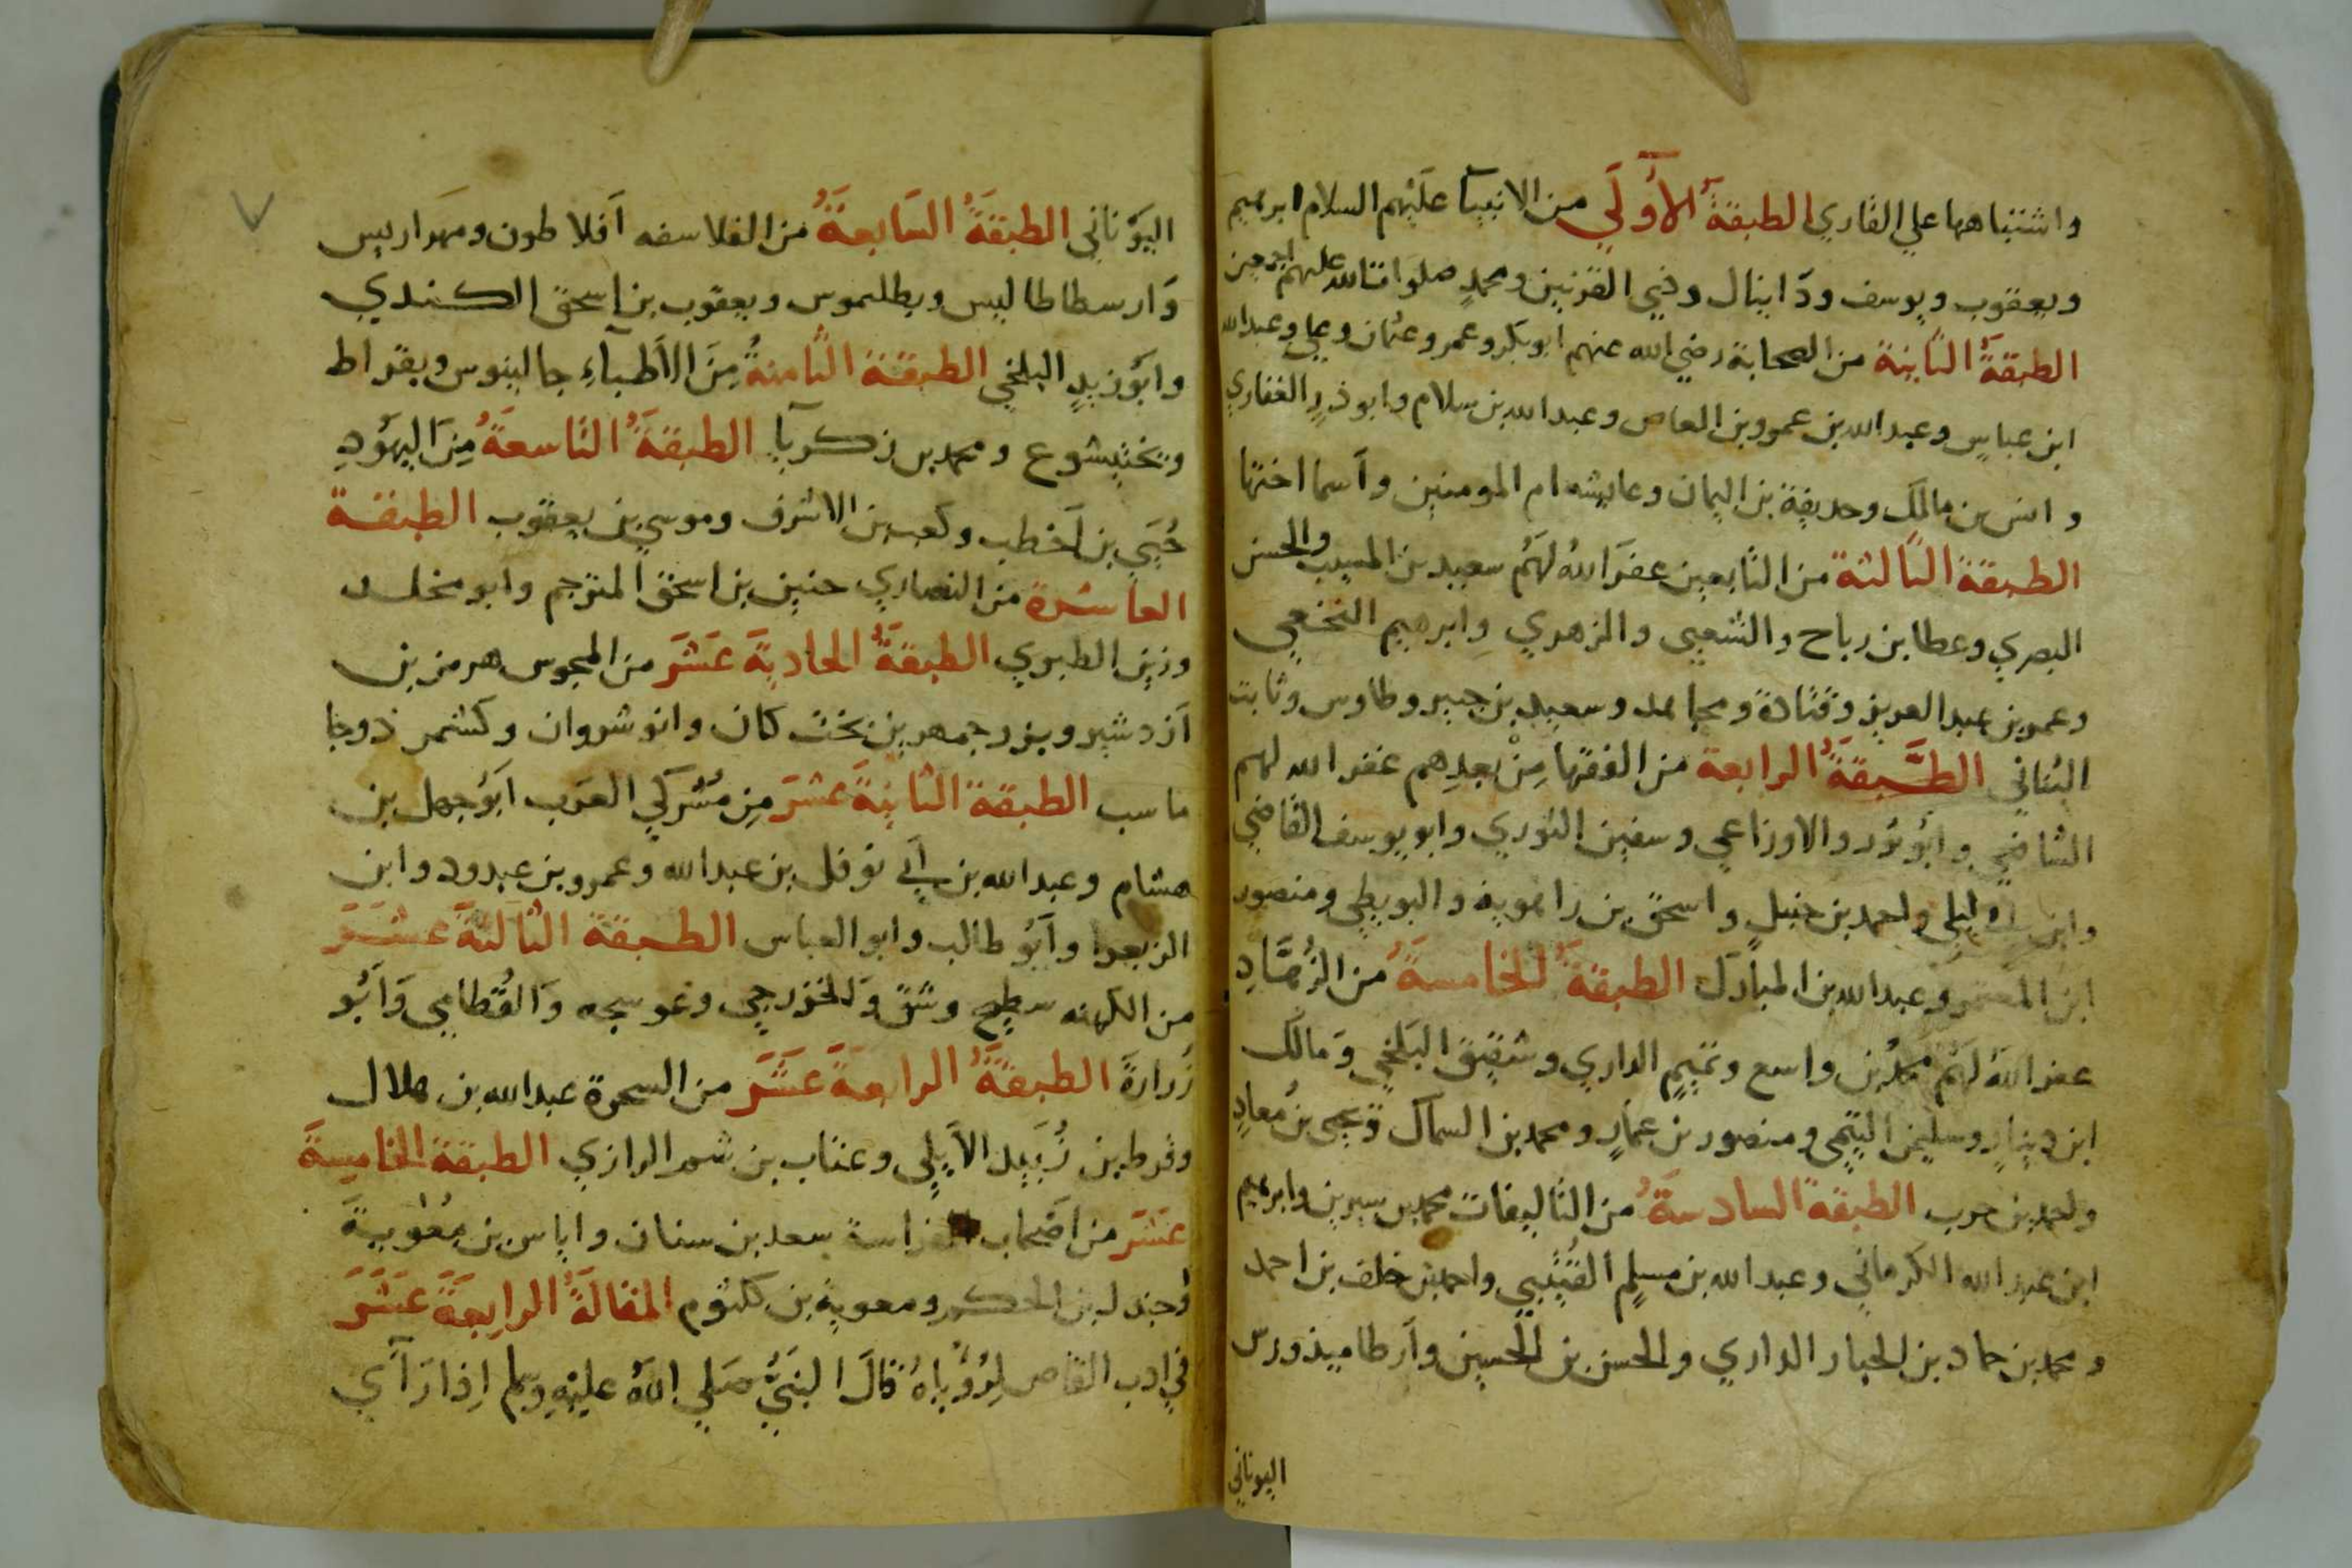 واشتباهها علي القاري الطبقة الأولي من الانبيآ عليهم السلام ابرهيم
ويعقوب ويوسف ودانيال وذي القرنين ومحمد صلوات الله عليهم اجمعين
الطبقة الثانية من الصحابة رضي الله عنهم ابوبكر وعمر وعثمان وعلي وعبدالله
ابن عباس وعبدالله بن عمرو بن العاص وعبدالله بن سلام وابو ذر الغفاري
وانس بن مالك وحديفة بن اليمان وعايشه ام المومنين وأسما اختها
الطبقة الثالثة من التابعين غفر الله لهم سعيد بن المسيب والحسن
البصري وعطا بن رباح والشعبي والزهري وابرهيم النخعي
وعمر بن عبد العزيز وقتادة ومجاهد وسعيد بن جبير وطاوس وثابت
البناني الطبقة الرابعة من الفقها من بعدهم غفر الله لهم
الشافعي وابو ثور والاوزاعي وسفين الثوري وابو يوسف القاضي
وابن ابي ليلي واحمد بن حنبل واسحق بن راهوية والبويطي ومنصور
ابن المعتمر وعبدالله بن المبارك الطبقة الخامسة من الزهاد
غفر الله لهم محمد بن واسع وتميم الداري وشقيق البلخي ومالك
ابن دينار وسليمن التيمي ومنصور بن عمار ومحمد بن السماك ويحيى بن معاد
واحمد بن حرب الطبقة السادسة من التاليفات محمد بن سيرين وابرهيم
ابن عبد الله الكرماني وعبد الله بن مسلم القتيبي واحمد بن خلف بن احمد
ومحمد بن حماد بن الحباز الداري والحسن بن الحسين وأرطاميذورس
اليوناني
اليوناني الطبقة السابعة من الفلاسفه أفلاطون ومهراريس
وارسطاطاليس وبطلموس ويعقوب بن اسحق الكندي
وابو زيد البلخي الطبقة الثامنة من الأطباء جالينوس وبقراط
وبختيشوع ومحمد بن زكريا الطبقة التاسعة من اليهود
حيي بن أخطب وكعب بن الاشرف وموسي بن يعقوب الطبقة
العاشرة من النصاري حنين بن اسحق المترجم وابو مخلد
وزين الطبري الطبقة الحادية عشر من المجوس هرمز بن
أزدشير وبزرجمهر بن بخت كان وانوشروان وكشمر ذوجا
ماسب الطبقة الثانية عشر من مشركي العرب ابو جهل بن
هشام وعبدالله بن أبي نوفل بن عبدالله وعمرو بن عبدود وابن
الزبعرا وأبو طالب وابو العباس الطبقة الثالثة عشر
من الكهنه سطيح وشق والخزرجي وعوسجه والقطامي وأبو
زرارة الطبقة الرابعة عشر من السحرة عبدالله بن هلال
وقرط بن زبيد الأيلي وعتاب بن شمر الرازي الطبقة الخامسة
عشر من اصحاب الفراسة سعد بن سنان واياس بن معوية
وجندل بن الحكم ومعوية بن كلثوم المقالة الرابعة عشر
في ادب القاص لرؤياه قال النبي صلي الله عليه وسلم اذا رآي